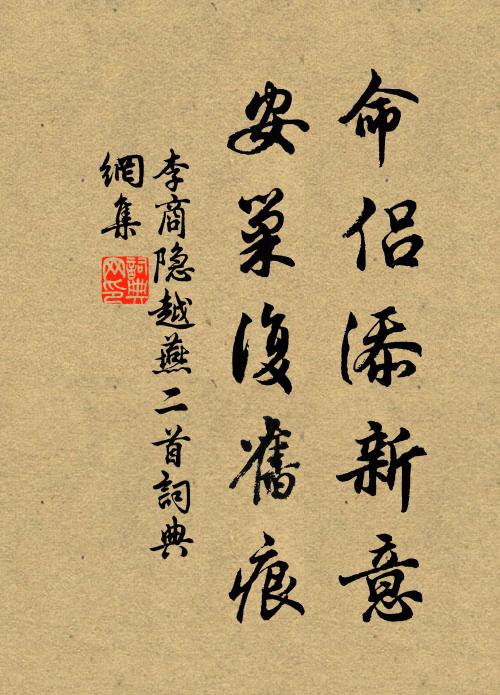 命侶添新意
安巢復舊痕
李商隐越燕二首詞典
網集
詞典
网印